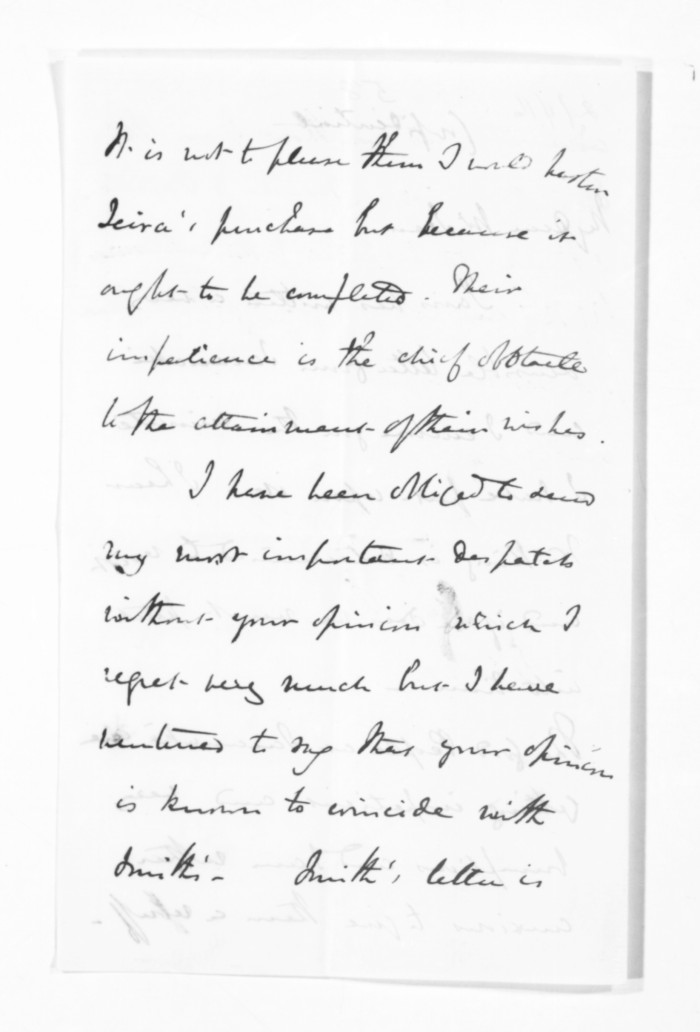 It is not to please them I would hasten
Teira's purchase but because it
ought to be completed. Their
impatience is the chief obstacle
to the attainment of their wishes.
I have been obliged to send
my most important despatch
without your opinion which I
regret very much but I have
ventured to say that your opinion
is known to coincide with
Smith's - Smith's letter is